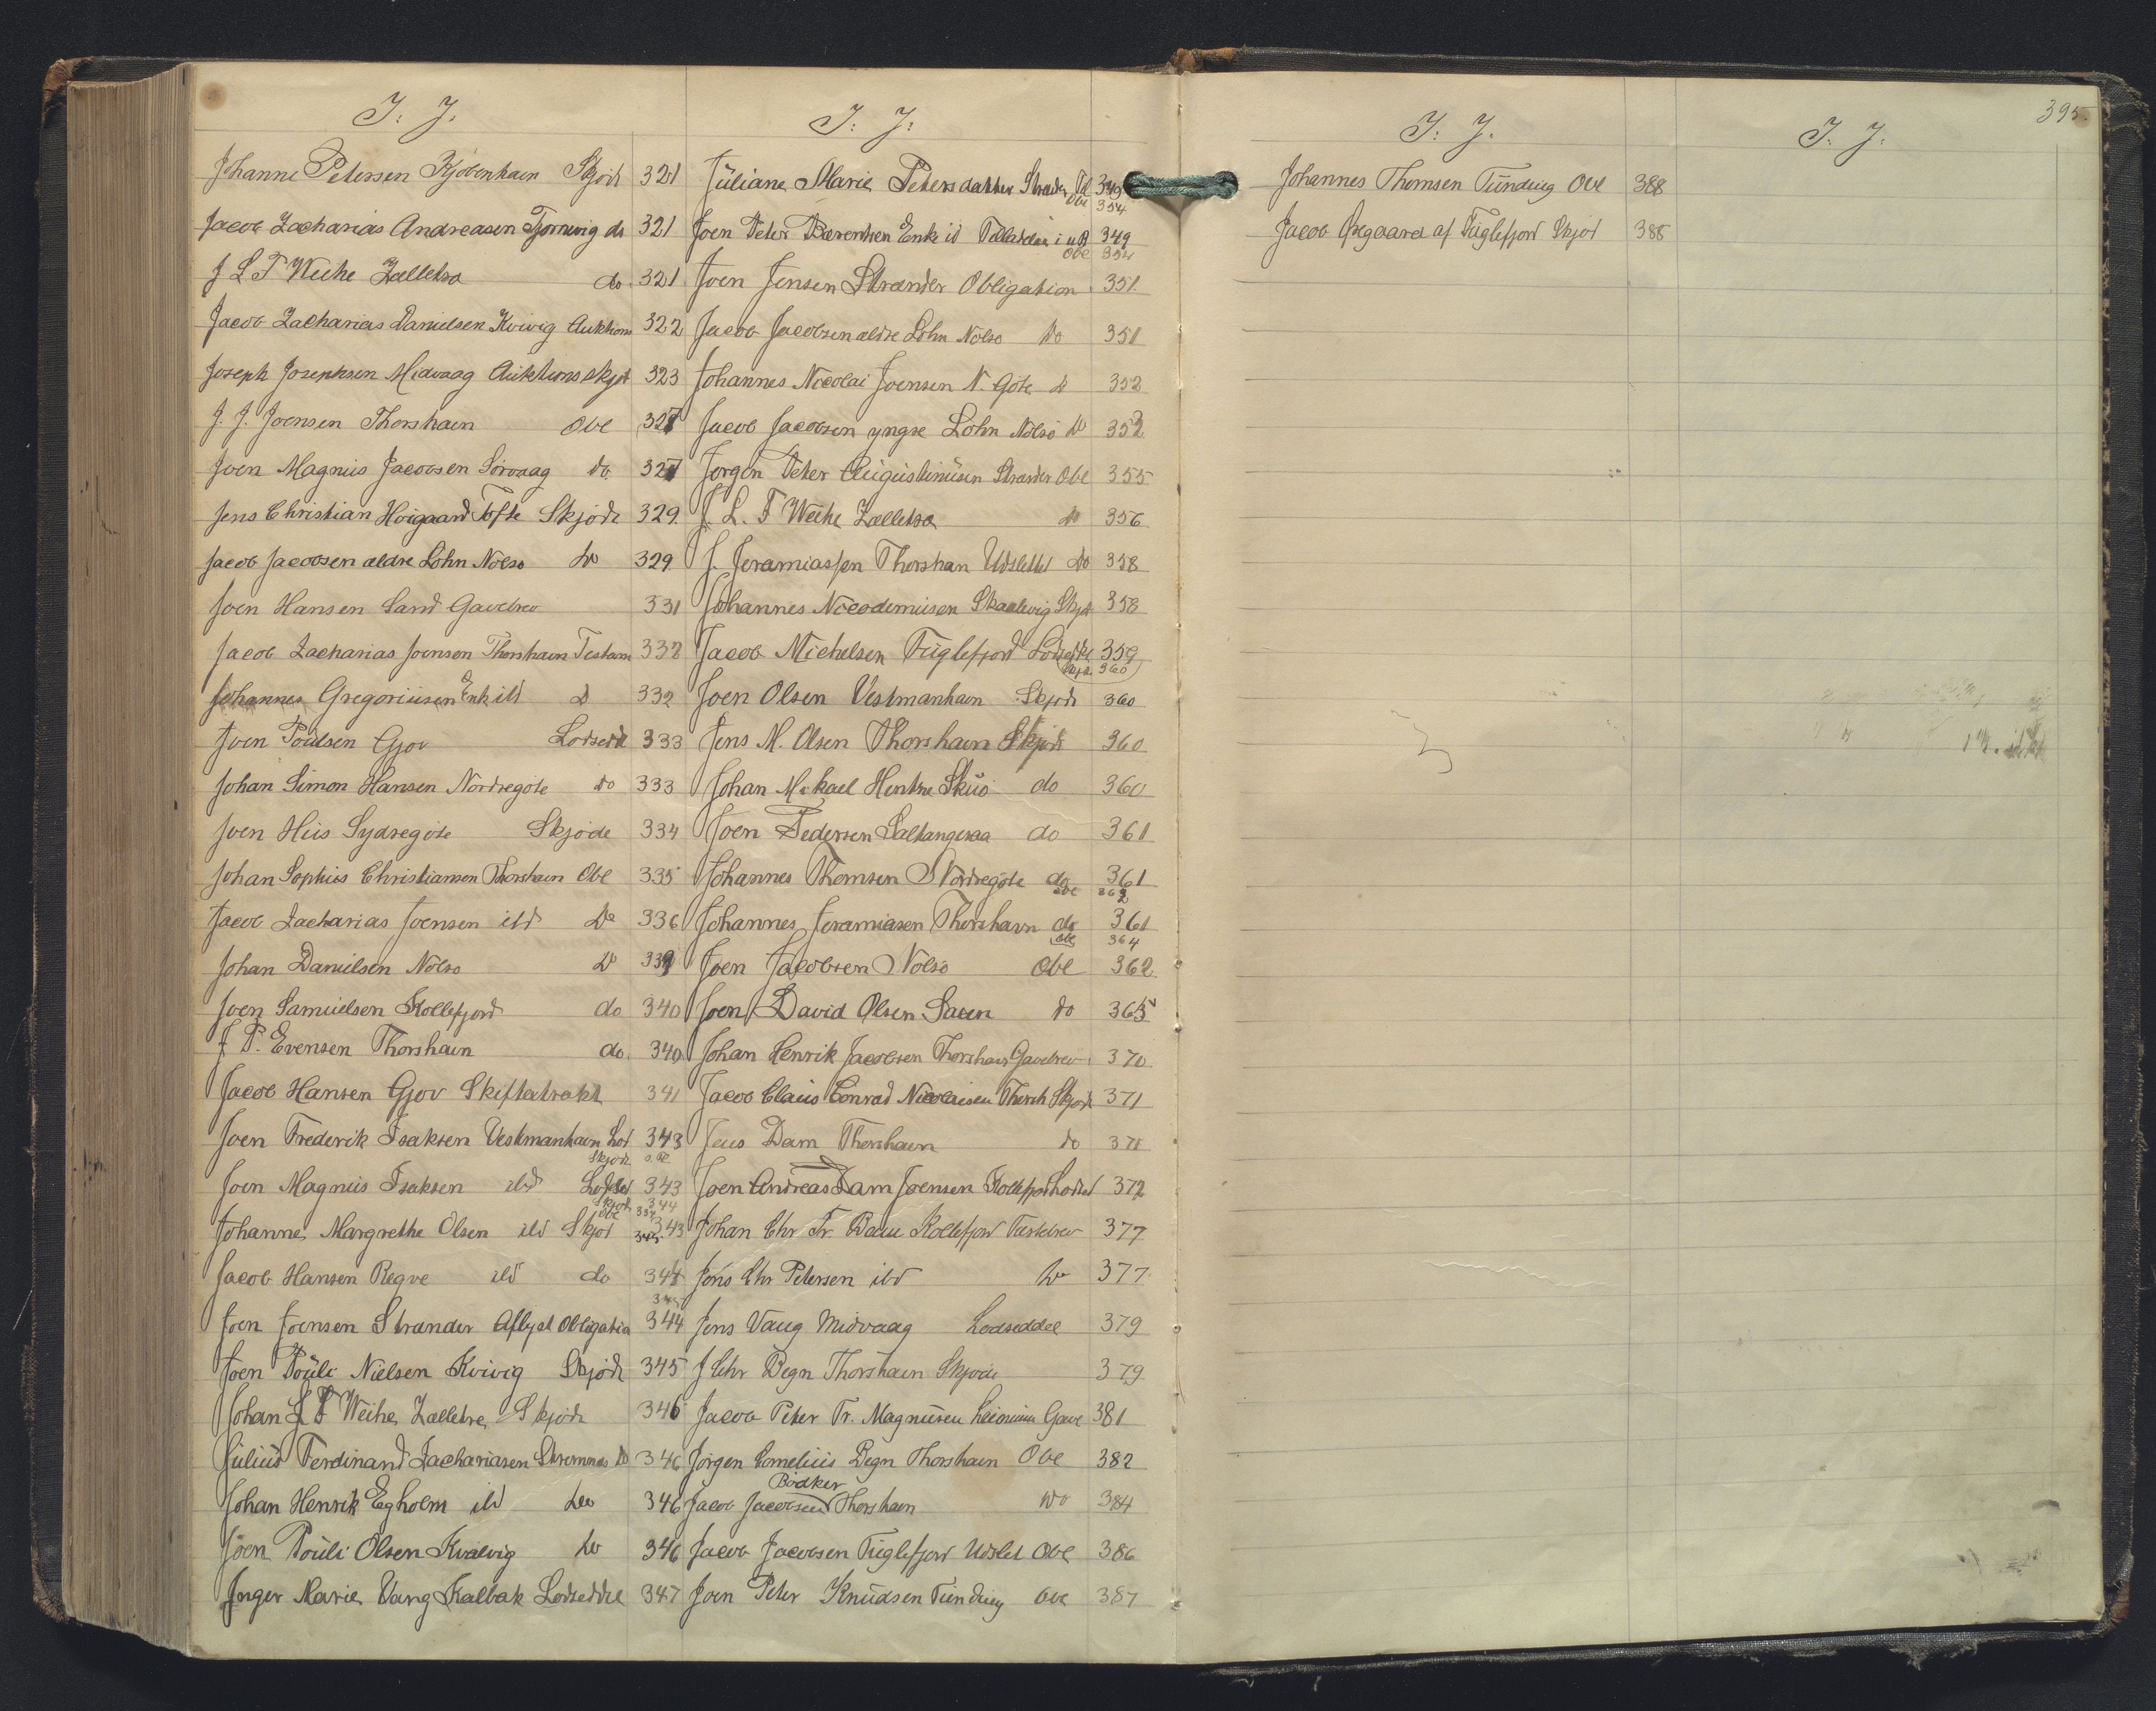 I. J.
Johanne Petersen Kjøbenhavn Skjøde 321
Jacob Zacharias Andreasen Tjørnevig do 321
J L F Weihe Zelletræ do. 321
Jacob Zacharias Danielsen Kvivig Auktions 322
Joseph Josephsen Midvaag Auktionsskjøt 323
J. J. Joensen Thorshavn Obl 327
Joen Magnus Jacobsen Sørvaag do. 327
Jens Christian Høigaard Tofte Skjøde 329.
Jacob Jacobsen ældre Løhn Nolsø do 329.
Joen Hansen Sand Gavebrev 331
Jacob Zacharias Joensen Thorshavn Testam 332
Johannes Gregoriusen Enke ibd D 332
Joen Poulsen Gjov Lodsedd 333
Johan Simon Hansen Nordregøte do 333
Joen Hüs Sydregøte Skjøde 334
Johan Sophus Christiansen Thorshavn Obl 335
Jacob Zacharias Joensen ibd Do 336
Johan Danielsen Nolsø D 339
Joen Samuelsen Kollefjord do 340
J P. Evensen Thorshavn do. 340
Jacob Hansen Gjov Skifteextrakt 341
Joen Frederik Isaksen Vestmanhavn Lod 343
Skjøde
Joen Magnus Isaksen ibd Lodsed 343
Skjøde 344
Obl
Johanne Margrethe Olsen ibd Skjøt 343
345
Jacob Hansen Regve ibd do 344
345
Joen Joensen Strænder Aflyst Obligation 344
Joen Pouli Nielsen Kvivig Skjøde 345
Johan L F Weihe Zelletræ Skjøde 346
Julius Ferdinand Zachariasen Strømnæs D 346
Johan Henrik Egholm ibd do 346
Joen Pouli Olsen Kvalvig do 346
Inger Marie Vang Kalbak Lodseddel 347
I. J.
Juliane Marie Petersdatter Strænder 349
Obl 354
Joen Peter Berentsen Enke ib 349
Obl 354
Joen Jensen Strænder Obligation 351.
Jacob Jacobsen ældre Løhn Nolsø do 351
Johannes Nicolai Joensen N. Gøte do 352
Jacob Jacobsen yngre Løhn Nolsø do 352
Jørgen Peter Augustinusen Strænder Obl 355
J. L. F Weihe Zelletræ do 356
J. Jeramiassen Thorshavn Udslettet do 358
Johannes Nicodemusen Skaalevig Skjø 358
Jacob Michelsen Fuglefjord Lodseddel 359
Skjø. 360
Joen Olsen Vestmanhavn Skjøde 360
Jens M. Olsen Thorshavn Skjøde 360
Johan Mikael Hentze Skuø do 360
Joen Pedersen Saltangeraa do 361
Johannes Thomsen Nordregøte do 361
Obl 362
Johannes Jeramiasen Thorshavn do 361
Obl 364
Joen Jacobsen Nolsø Obl 362
Joen David Olsen Saxen do 365
Johan Henrik Jacobsen Thorshavn Gavebrev 370
Jacob Claus Conrad Nicolaisen Thorsh Skjøde 371
Jens Dam Thorshavn do 371
Joen Andreas Dam Joensen Kollefjord Lodsed 372
Johan Chr Fr. Dam Kollefjord Fæstebrev 377
Jens Chr Petersen ibd do 377.
Jens Vaug Midvaag Lodseddel 379
J Chr Degn Thorshavn Skjøde 379
Jacob Peter Fr. Magnusen Gave 381
Jørgen Cornelius Degn Thorshavn Obl 382
Bødker
Jacob Jacobsen Thorshavn do 384
Jacob Jacobsen Fuglefjord Udslet Obl 386
Joen Peter Knudsen Funding Obl 387
I. J.
Johannes Thomsen Funding Obl 388
Jacob Øregaard af Fuglefjord Skjøt 388
395.
I. J.